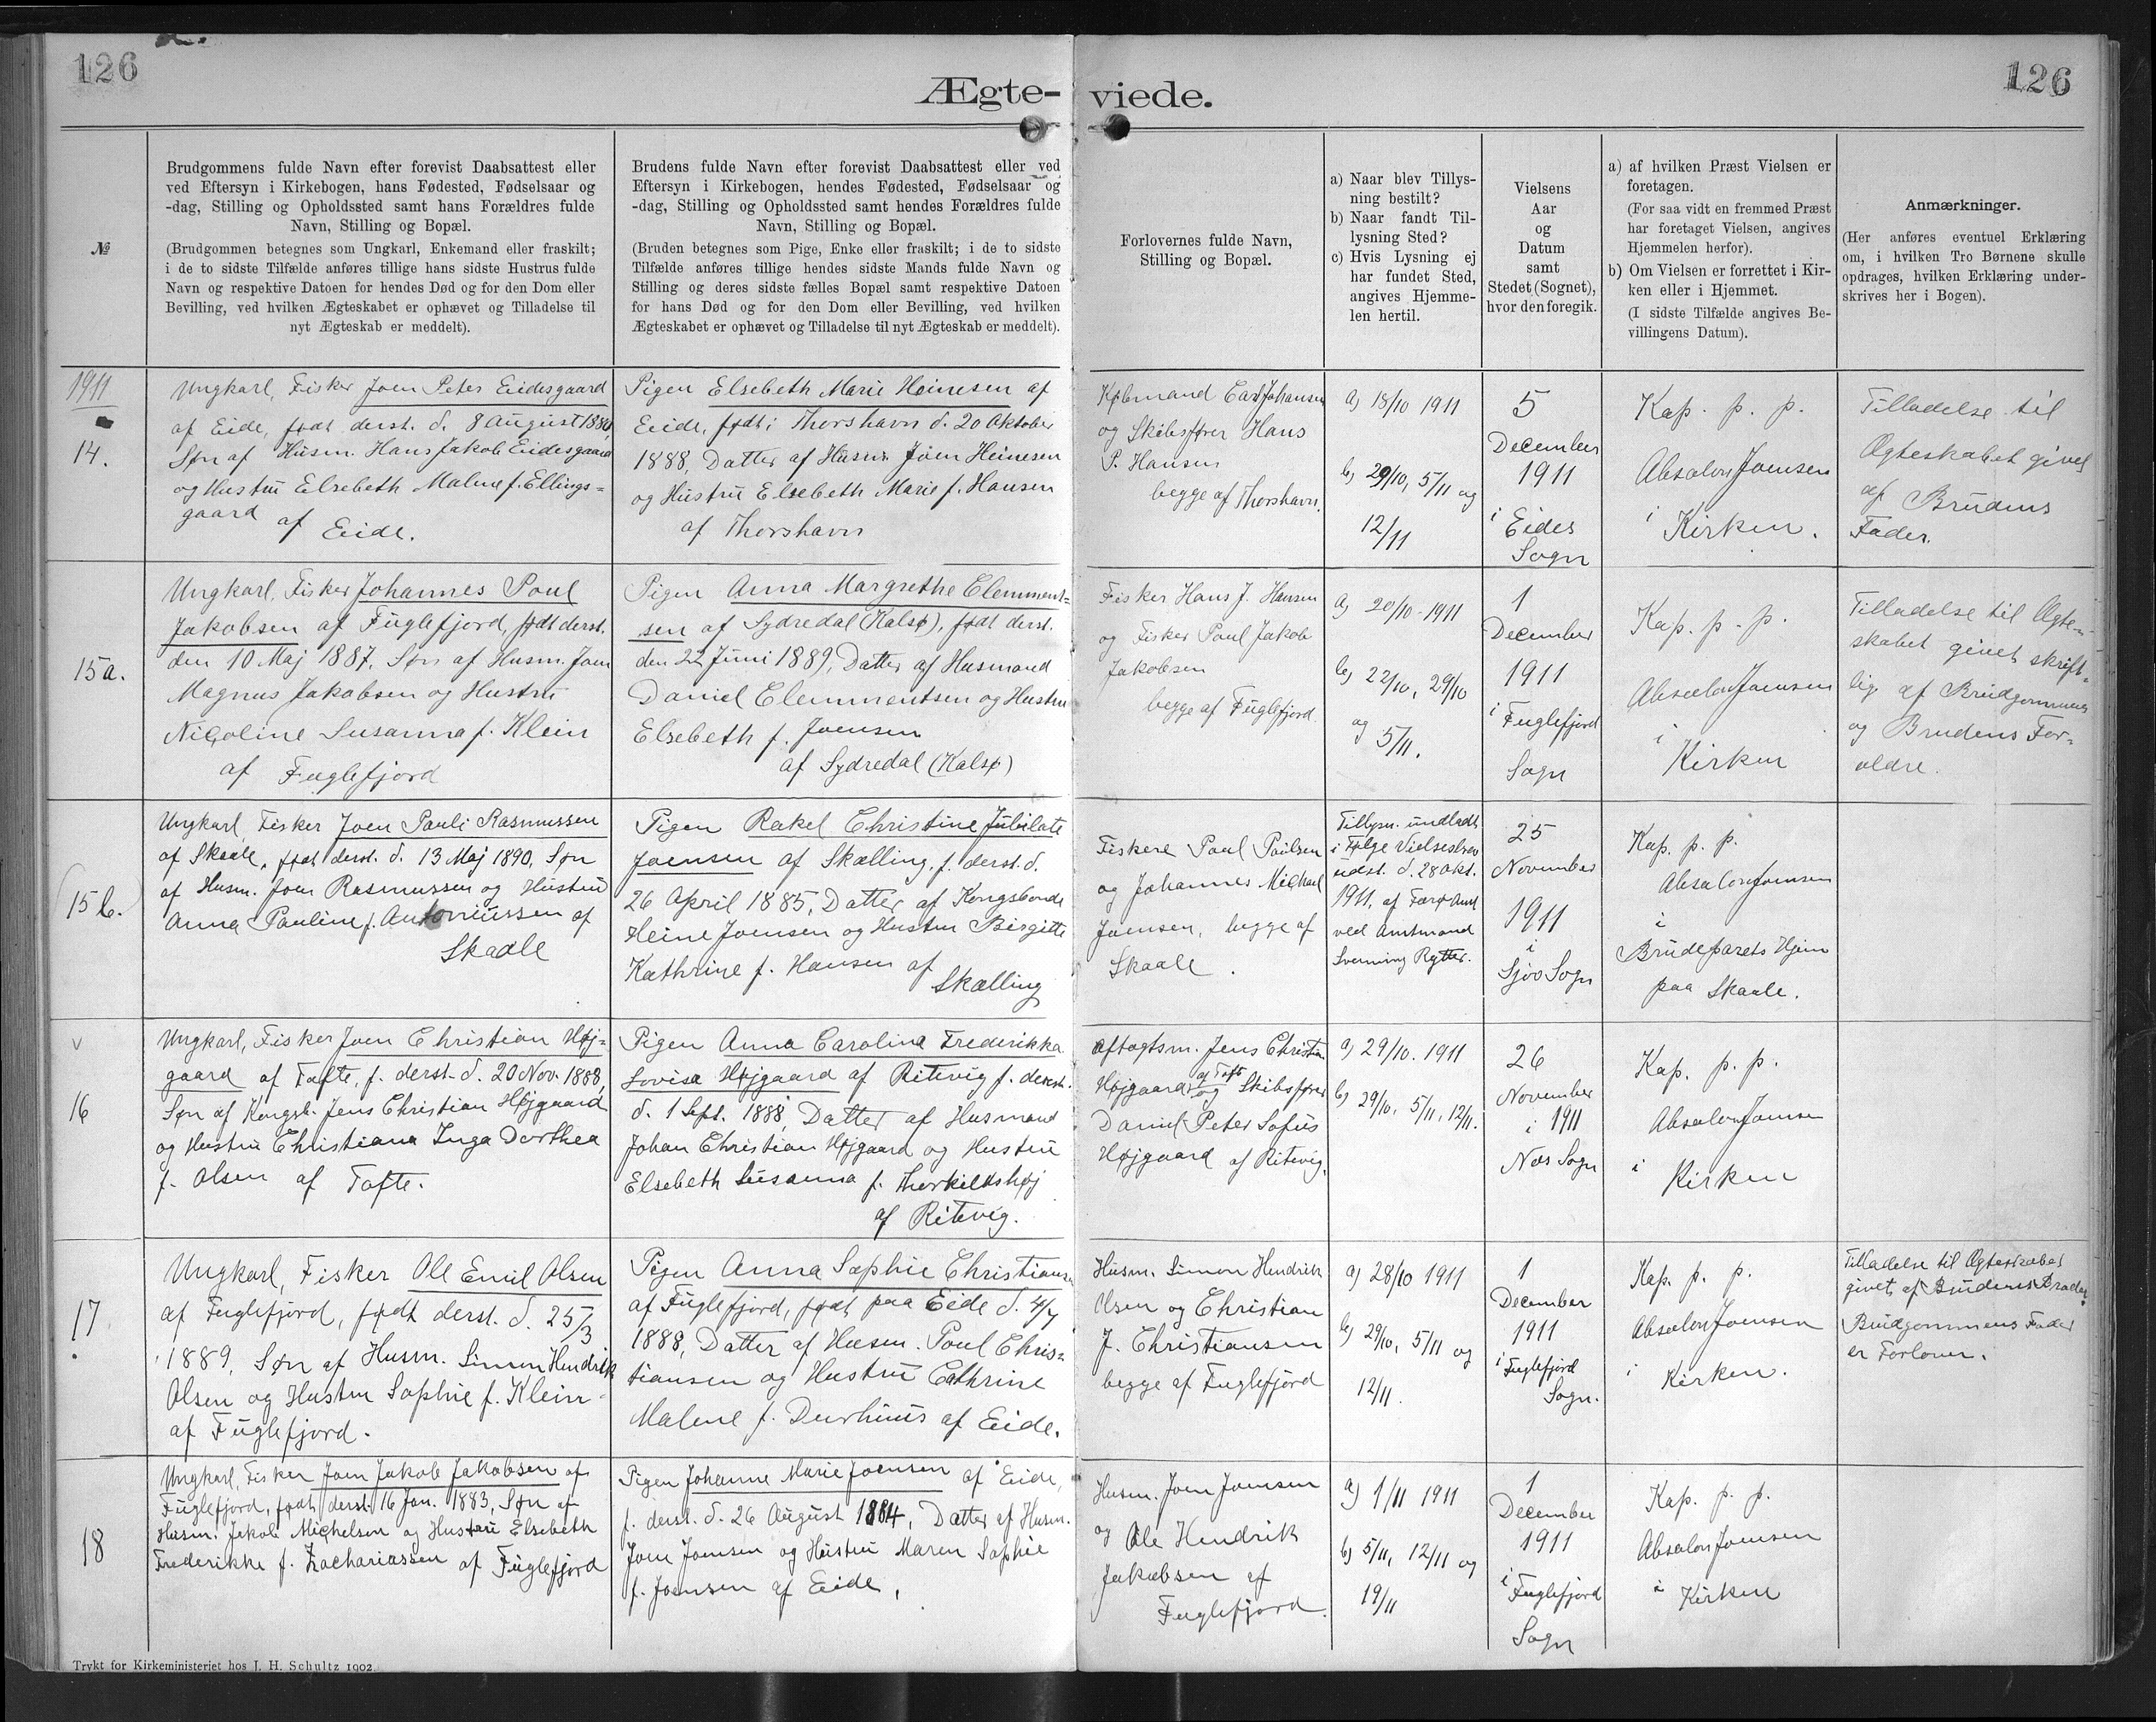 126
126
Ægte-
viede.
№
Brudgommens fulde Navn efter forevist Daabsattest eller
ved Eftersyn i Kirkebogen, hans Fødested, Fødselsaar og
-dag, Stilling og Opholdssted samt hans Forældres fulde
Navn, Stilling og Bopæl.
(Brudgommen betegnes som Ungkarl, Enkemand eller fraskilt;
i de to sidste Tilfælde anføres tillige hans sidste Hustrus fulde
Navn og respektive Datoen for hendes Død og for den Dom eller
Bevilling, ved hvilken Ægteskabet er ophævet og Tilladelse til
nyt Ægteskab er meddelt).
Brudens fulde Navn efter forevist Daabsattest eller ved
Eftersyn i Kirkebogen, hendes Fødested, Fødselsaar og
-dag, Stilling og Opholdssted samt hendes Forældres fulde
Navn, Stilling og Bopæl.
(Bruden betegnes som Pige, Enke eller fraskilt; i de to sidste
Tilfælde anføres tillige hendes sidste Mands fulde Navn og
Stilling og deres sidste fælles Bopæl samt respektive Datoen
for hans Død og for den Dom eller Bevilling, ved hvilken
Ægteskabet er ophævet og Tilladelse til nyt Ægteskab er meddelt).
Forlovernes fulde Navn,
Stilling og Bopæl.
a) Naar blev Tillys-
ning bestilt?
b) Naar fandt Til-
lysning Sted?
c) Hvis Lysning ej
har fundet Sted,
angives Hjemme-
len hertil.
Vielsens
Aar
og
Datum
samt
Stedet (Sognet),
hvor den foregik.
a) af hvilken Præst Vielsen er
foretagen.
(For saa vidt en fremmed Præst
har foretaget Vielsen, angives
Hjemmelen herfor).
b) Om Vielsen er forrettet i Kir-
ken eller i Hjemmet.
(I sidste Tilfælde angives Be-
villingens Datum).
Anmærkninger.
(Her anføres eventuel Erklæring
om, i hvilken Tro Børnene skulle
opdrages, hvilken Erklæring under-
skrives her i Bogen).
1911
14.
Ungkarl, Fisker Joen Peter Eidesgaard
af Eide, født derst. d. 8 August
Søn af Husm. Hans Jakob Eidesgaard
og Hustru Elsebeth Malene f. Ellings=
gaard
af Eide.
Pigen Elsebeth Marie Heinesen af
Eide, født i Thorshavn d. 20 Oktober
1888, Datter af Husm. Joen Heinesen
og Hustru Elsebeth Marie f. Hansen
af Thorshavn
Købmand Carl Johansen
og Skibsfører Hans
P. Hansen
begge af Thorshavn.
a) 18/10 1911
b) 29/10, 5/11 og
12/11
5
December
1911
i Eides
Sogn
Kap. p. p.
Absalon Joensen
i Kirken.
Tilladelse til
Ægteskabet givet
af Brudens
Fader.
15a.
Ungkarl, Fisker Johannes Poul
Jakobsen af Fuglefjord, født derst.
den 10 Maj 1887, Søn af Husm. Joen
Magnus Jakobsen og Hustru
Nicoline Susanna f. Klein
af Fuglefjord
Pigen Anna Margrethe Clemment=
sen af Sydredal (Kalsø), født derst.
den 22 Juni 1889, Datter af Husmand
Daniel Clemmentsen og Hustru
Elsebeth f. Joensen
af Sydredal (Kalsø)
Fisker Hans J. Hansen
og Fisker Poul Jakob
Jakobsen
begge af Fuglefjord.
a) 20/10 1911
b) 22/10, 29/10
og 5/11.
1
December
1911
i Fuglefjord
Sogn
Kap. p. p.
Absalon Joensen
i
Kirken
Tilladelse til Ægte=
skabet givet skrift=
lig af Brudgommens
og Brudens For=
ældre.
15 b.
Ungkarl, Fisker Joen Pauli Rasmussen
af Skaale, født derst. d. 13 Maj 1890, Søn
af Husm. Joen Rasmussen og Hustru
Anna Pauline f. Antoniussen af
Skaale
Pigen Rakel Christine Jubilate
Joensen af Skælling, f. derst. d.
26 April 1885, Datter af Kongsbonde
Heine Joensen og Hustru Birgitte
Kathrine f. Hansen af
Skælling
Fiskere Poul Poulsen
og Johannes Michael
Joensen, begge af
Skaale.
Tillysn. undladt
i Følge Vielsesbrev
udst. d. 28 Okt.
1911, af Færø Amt
ved Amtmand
Svenning Rytter.
25
November
1911
i
Sjov Sogn
Kap. p. p.
Absalon Joensen
i
Brudeparets Hjem
paa Skaale.
v
16
Ungkarl, Fisker Joen Christian Høj=
gaard af Tofte, f. derst. d. 20 Nov. 1888,
Søn af Kongsb. Jens Christian Højgaard
og Hustru Christiana Inga Dorthea
f. Olsen af Tofte.
Pigen Anna Carolina Frederikka
Lovisa Højgaard af Ritevig f. derst.
d. 1 Sept. 1888, Datter af Husmand
Johan Christian Højgaard og Hustru
Elsebeth Susanna f. Thorkildshøj
af Ritevig.
Aftogtsm. Jens Christian
Højgaard af Toft og Skibsfører
Daniel Peter Sofus
Højgaard af Ritevig.
a) 29/10. 1911
b) 29/10, 5/11, 12/11.
26
November
i 1911
Næs Sogn
Kap. p. p.
Absalon Joensen
i
Kirken
17.
Ungkarl, Fisker Ole Emil Olsen
af Fuglefjord, født derst. d. 25/3
1889, Søn af Husm. Simon Hendrik
Olsen og Hustru Sophie f. Klein
af Fuglefjord.
Pigen Anna Sophie Christiansen
af Fuglefjord, født paa Eide d. 4/7
1888, Datter af Husm. Poul Chris=
tiansen og Hustru Cathrine
Malene f. Durhuus af Eide.
Husm. Simon Hendrik
Olsen og Christian
J. Christiansen
begge af Fuglefjord
a) 28/10 1911
b) 29/10, 5/11 og
12/11.
1
December
1911
i Fuglefjord
Sogn.
Kap. p. p.
Absalon Joensen
i
Kirken.
Tilladelse til Ægteskabet
givet af Brudens
Brudgommens Fader
er Forlover.
18
Ungkarl, Fisker Joen Jakob Jakobsen af
Fuglefjord, født derst. 16 Jan. 1883, Søn af
Husm. Jakob Michelsen og Hustru Elsebeth
Frederikke f. Zachariassen af Fuglefjord
Pigen Johanne Marie Joensen af Eide,
f. derst. d. 26 August 1884, Datter af Husm.
Joen Joensen og Hustru Maren Sophie
f. Joensen af Eide.
Husm. Joen Joensen
og Ole Hendrik
Jakobsen af
Fuglefjord.
a) 1/11 1911
b) 5/11, 12/11 og
19/11
1
December
1911
i Fuglefjord
Sogn
Kap. p. p.
Absalon Joensen
i Kirken
Trykt for Kirkeministeriet hos J. H. Schultz 1902.